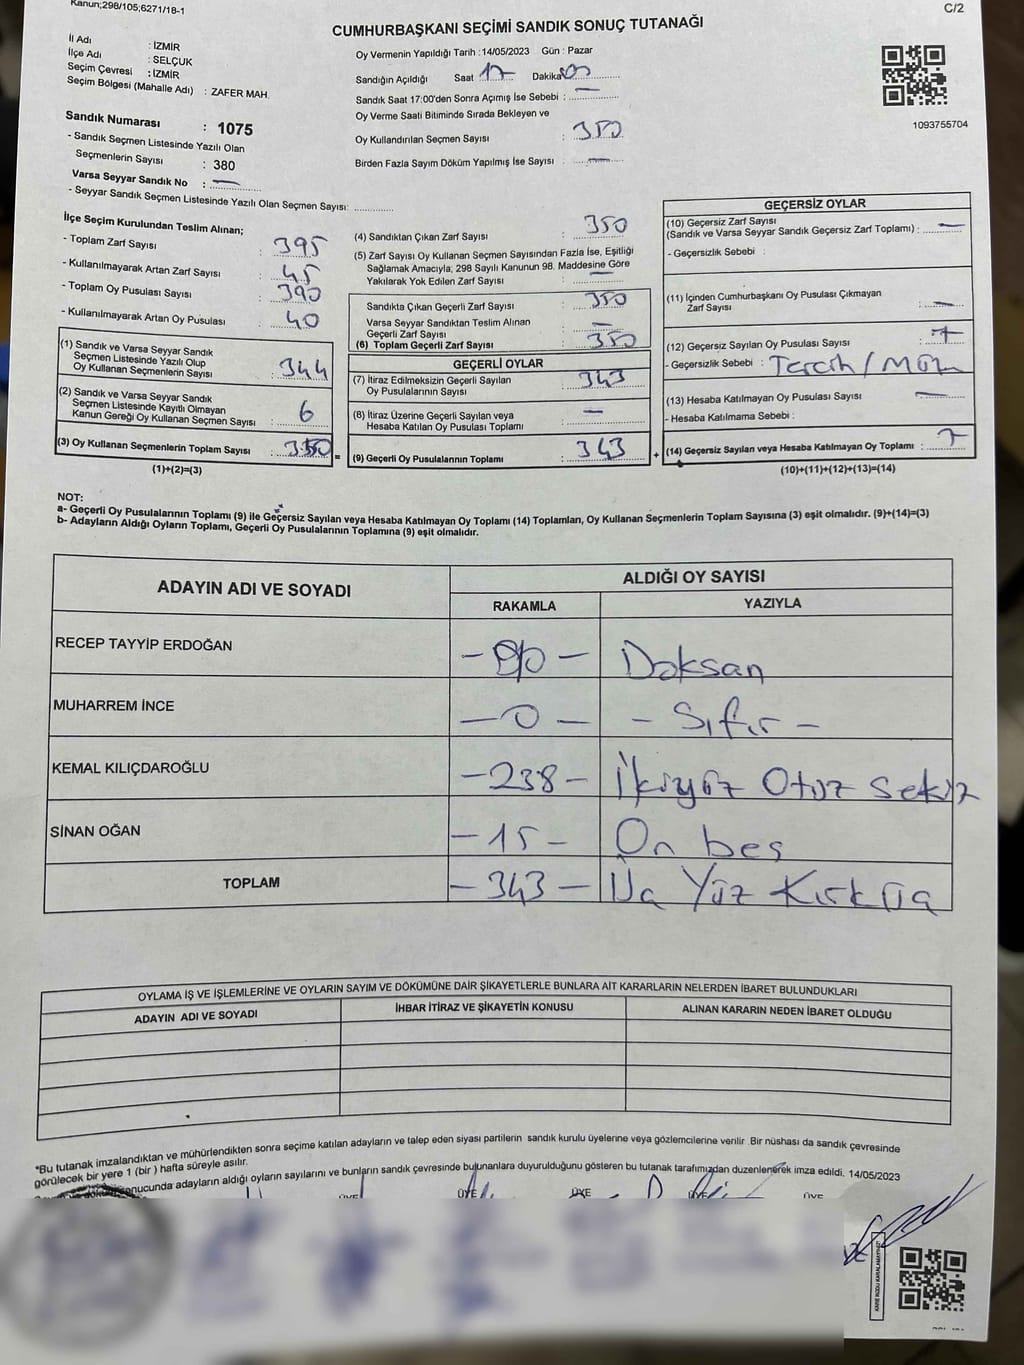 Kanun;298/105;6271/18-1
C/2
CUMHURBAŞKANI SEÇİMİ SANDIK SONUÇ TUTANAĞI
İl Adı : İZMİR
İlçe Adı : SELÇUK
Seçim Çevresi : İZMİR
Seçim Bölgesi (Mahalle Adı) : ZAFER MAH.
Sandık Numarası : 1075
- Sandık Seçmen Listesinde Yazılı Olan
Seçmenlerin Sayısı : 380
Varsa Seyyar Sandık No : —
- Seyyar Sandık Seçmen Listesinde Yazılı Olan Seçmen Sayısı:
Oy Vermenin Yapıldığı Tarih : 14/05/2023 Gün : Pazar
Sandığın Açıldığı Saat 17 Dakika 00
Sandık Saat 17:00'den Sonra Açımış İse Sebebi : —
Oy Verme Saati Bitiminde Sırada Bekleyen ve
Oy Kullandırılan Seçmen Sayısı : 350
Birden Fazla Sayım Döküm Yapılmış İse Sayısı : —
1093755704
İlçe Seçim Kurulundan Teslim Alınan;
- Toplam Zarf Sayısı : 395
- Kullanılmayarak Artan Zarf Sayısı : 45
- Toplam Oy Pusulası Sayısı : 390
- Kullanılmayarak Artan Oy Pusulası : 40
(1) Sandık ve Varsa Seyyar Sandık
Seçmen Listesinde Yazılı Olup
Oy Kullanan Seçmenlerin Sayısı : 344
(2) Sandık ve Varsa Seyyar Sandık
Seçmen Listesinde Kayıtlı Olmayan
Kanun Gereği Oy Kullanan Seçmen Sayısı : 6
(3) Oy Kullanan Seçmenlerin Toplam Sayısı : 350 =
(1)+(2)=(3)
(4) Sandıktan Çıkan Zarf Sayısı : 350
(5) Zarf Sayısı Oy Kullanan Seçmen Sayısından Fazla İse, Eşitliği
Sağlamak Amacıyla, 298 Sayılı Kanunun 98. Maddesine Göre
Yakılarak Yok Edilen Zarf Sayısı : —
Sandıkta Çıkan Geçerli Zarf Sayısı : 350
Varsa Seyyar Sandıktan Teslim Alınan
Geçerli Zarf Sayısı : —
(6) Toplam Geçerli Zarf Sayısı : 350
GEÇERLİ OYLAR
(7) İtiraz Edilmeksizin Geçerli Sayılan
Oy Pusulalarının Sayısı : 343
(8) İtiraz Üzerine Geçerli Sayılan veya
Hesaba Katılan Oy Pusulası Toplamı : —
(9) Geçerli Oy Pusulalarının Toplamı : 343 +
GEÇERSİZ OYLAR
(10) Geçersiz Zarf Sayısı
(Sandık ve Varsa Seyyar Sandık Geçersiz Zarf Toplamı) : —
- Geçersizlik Sebebi :
(11) İçinden Cumhurbaşkanı Oy Pusulası Çıkmayan
Zarf Sayısı : —
(12) Geçersiz Sayılan Oy Pusulası Sayısı : 7
- Geçersizlik Sebebi : Tercih /
(13) Hesaba Katılmayan Oy Pusulası Sayısı : —
- Hesaba Katılmama Sebebi :
(14) Geçersiz Sayılan veya Hesaba Katılmayan Oy Toplamı : 7
(10)+(11)+(12)+(13)=(14)
NOT:
a- Geçerli Oy Pusulalarının Toplamı (9) ile Geçersiz Sayılan veya Hesaba Katılmayan Oy Toplamı (14) Toplamları, Oy Kullanan Seçmenlerin Toplam Sayısına (3) eşit olmalıdır. (9)+(14)=(3)
b- Adayların Aldığı Oyların Toplamı, Geçerli Oy Pusulalarının Toplamına (9) eşit olmalıdır.
ADAYIN ADI VE SOYADI
ALDIĞI OY SAYISI
RAKAMLA YAZIYLA
RECEP TAYYİP ERDOĞAN - 90 - Doksan
MUHARREM İNCE - 0 - - Sıfır -
KEMAL KILIÇDAROĞLU - 238 - İkiyüz Otuz Sekiz
SİNAN OĞAN - 15 - On beş
TOPLAM - 343 - Üç Yüz Kırküç
OYLAMA İŞ VE İŞLEMLERİNE VE OYLARIN SAYIM VE DÖKÜMÜNE DAİR ŞİKAYETLERLE BUNLARA AİT KARARLARIN NELERDEN İBARET BULUNDUKLARI
ADAYIN ADI VE SOYADI İHBAR İTİRAZ VE ŞİKAYETİN KONUSU ALINAN KARARIN NEDEN İBARET OLDUĞU
*Bu tutanak imzalandıktan ve mühürlendikten sonra seçime katılan adayların ve talep eden siyasi partilerin sandık kurulu üyelerine veya gözlemcilerine verilir. Bir nüshası da sandık çevresinde
görülecek bir yere 1 (bir ) hafta süreyle asılır.
sonucunda adayların aldığı oyların sayılarını ve bunların sandık çevresinde bulunanlara duyurulduğunu gösteren bu tutanak tarafımızdan düzenlenerek imza edildi. 14/05/2023
ÜYE ÜYE ÜYE ÜYE ÜYE